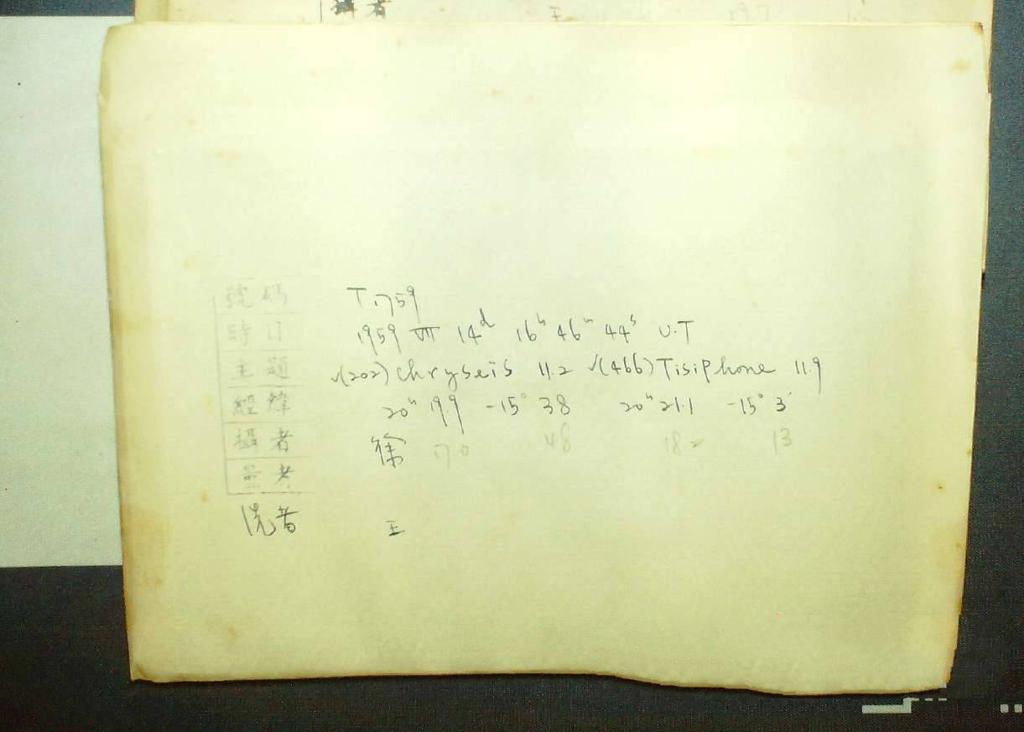 攝者 王 197
號碼 T1759
時订 1959 VII 14d 16h 46m 44s U.T
主題 √(202) chryseïs 11.2 √(466) Tisiphone 11.9
經緯 20h 19.9 -15° 38 20h 21.1 -15° 3'
攝者 徐 170 48 182 13
量者
洗者 王